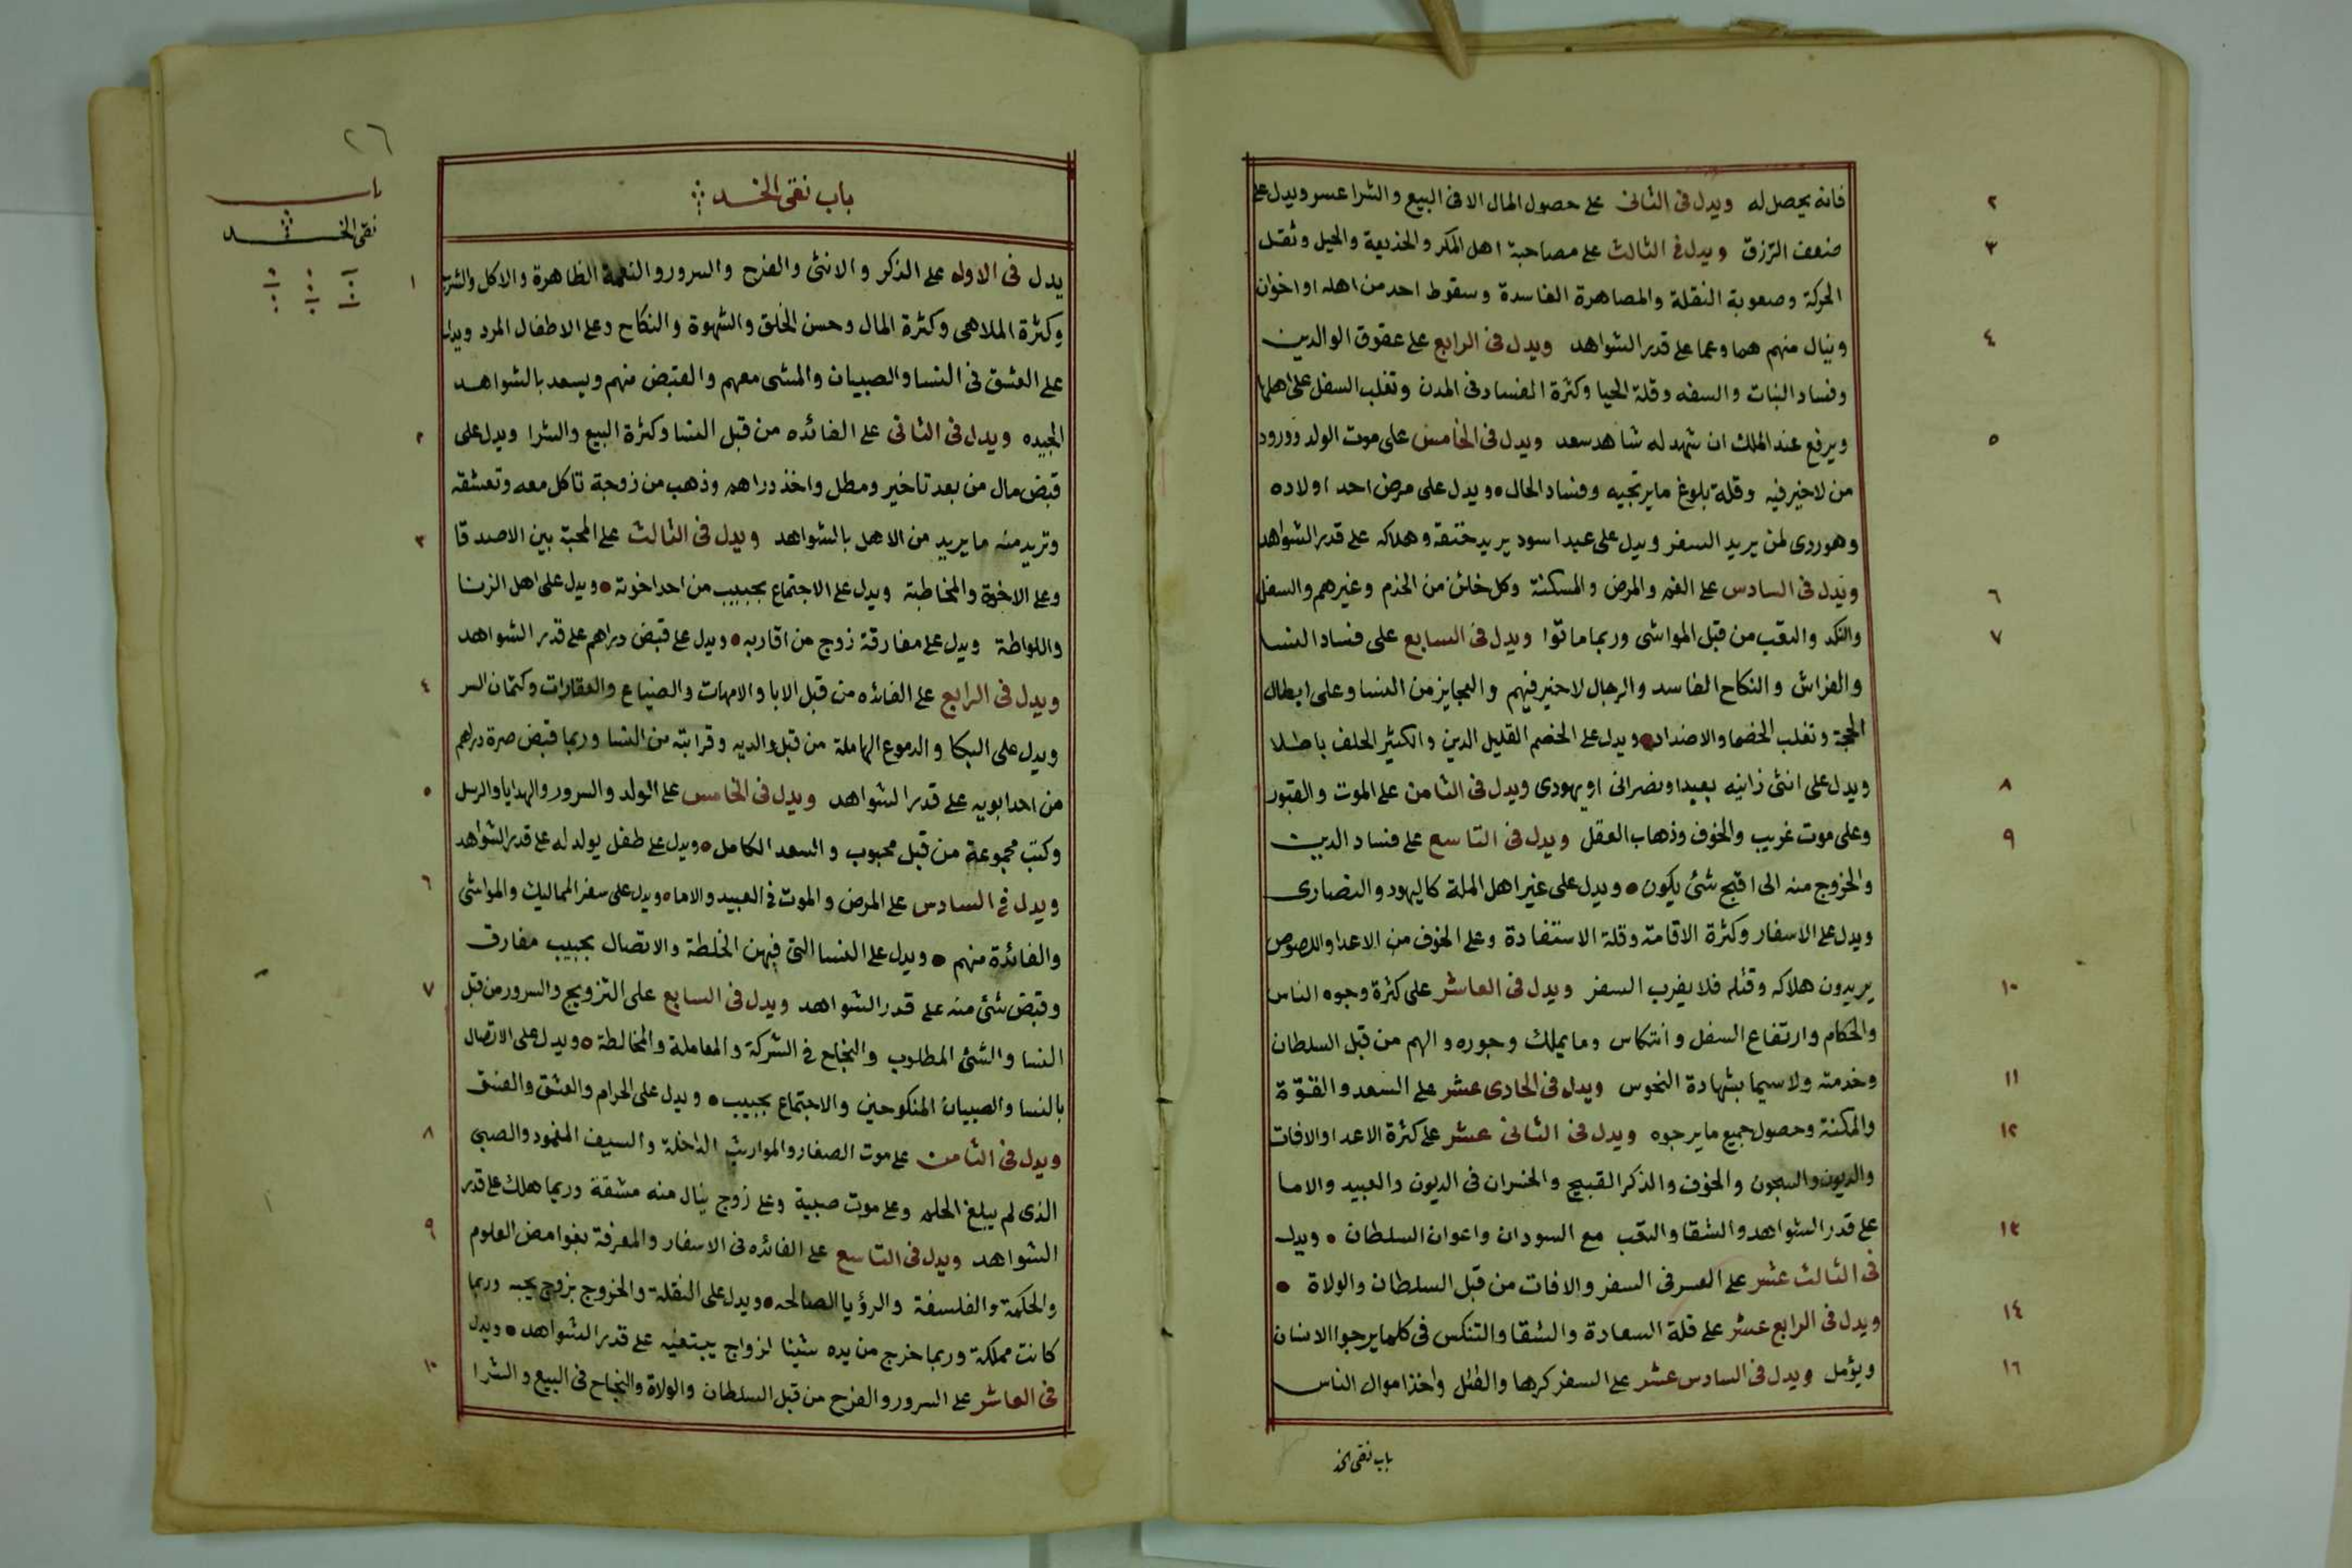 فانه يحصل له ويدل فى الثانى على حصول المال الا فى البيع والشرا عسر ويدل على
٢
ضعف الرزق ويدل فى الثالث على مصاحبة اهل المكر والخديعة والحيل وثقل
٣
الحركة وصعوبة النقلة والمصاهرة الفاسدة وسقوط احد من اهله او اخوان
وينال منهم هما وغما على قدر الشواهد ويدل فى الرابع على عقوق الوالدين
٤
وفساد النبات والسفه وقلة الحيا وكثرة الفساد فى المدن وتغلب السفل على اهلها
ويرفع عند الملك ان شهد له شاهد سعد ويدل فى الخامس على موت الولد وورود
٥
من لا خير فيه وقلة بلوغ ما يرتجيه وفساد الحال ويدل على مرض احد اولاده
وهو ردى لمن يريد السفر ويدل على عبد اسود يريد خنقه وهلاكه على قدر الشواهد
ويدل فى السادس على الغم والمرض والمسكنة وكل خائن من الخدم وغيرهم والسفل
٦
والنكد والتعب من قبل المواشى وربما ماتوا ويدل فى السابع على فساد النسا
٧
والفراش والنكاح الفاسد والرجال لا خير فيهم والعجايز من النسا وعلى ابطال
الحجة وتغلب الخصما والاضداد ويدل على الخصم القليل الدين والكثير الحلف باطلا
ويدل على انثى زانيه بعيد او نصرانى او يهودى ويدل فى الثامن على الموت والقبور
٨
وعلى موت غريب والخوف وذهاب العقل ويدل فى التاسع على فساد الدين
٩
والخروج منه الى اقبح شئ يكون ويدل على غير اهل الملة كاليهود والنصارى
ويدل على الاسفار وكثرة الاقامته وقلة الاستفادة وعلى الخوف من الاعدا واللصوص
يريدون هلاكه وقتله فلا يقرب السفر ويدل فى العاشر على كثرة وجوه الناس
١٠
والحكام وارتفاع السفل وانتكاس وما يملك وجوره والهم من قبل السلطان
وخدمته ولا سيما بشهادة النحوس ويدل فى الحادى عشر على السعد والفتوة
١١
والمكنة وحصول جميع ما يرجوه ويدل فى الثانى عشر على كثرة الاعدا والافات
١٢
والديون والسجون والخوف والذكر القبيح والخسران فى الديون والعبيد والاما
على قدر الشواهد والشقا والتعب مع السودان واعوان السلطان ويدل
١٣
فى الثالث عشر على العسر فى السفر والافات من قبل السلطان والولاة
ويدل فى الرابع عشر على قلة السعادة والشقا والتنكس فى كلما يرجوا الانسان
١٤
ويؤمل ويدل فى السادس عشر على السفر كرها والقتل واخذ اموال الناس
١٦
باب نقى الخد
٢٦
باب نقى الخد
باب
نقى الخد
يدل فى الاول على الذكر والانثى والفرح والسرور والنعمة الظاهرة والاكل والشرب
١
وكثرة الملاهى وكثرة المال وحسن الخلق والشهوة والنكاح وعلى الاطفال المرد ويدل
على العشق فى النسا والصبيان والمشى معهم والقبض منهم ويسعد بالشواهد
الجيده ويدل فى الثانى على الفائده من قبل النسا وكثرة البيع والشرا ويدل على
٢
قبض مال من بعد تاخير ومطل واخذ دراهم وذهب من زوجة تاكل معه وتعشقه
وتريد منه ما يريد من الاهل بالشواهد ويدل فى الثالث على المحبة بين الاصدقا
٣
وعلى الاخوة والمخاطبة ويدل على الاجتماع بحبيب من احد اخوته ويدل على اهل الزنا
واللواطة ويدل على مفارقة زوج من اقاربه ويدل على قبض دراهم على قدر الشواهد
ويدل فى الرابع على الفائده من قبل الابا والامهات والضياع والعقارات وكتمان السر
٤
ويدل على البكا والدموع الهاملة من قبل والديه وقرابته من النسا وربما قبض صرة دراهم
من احد ابويه على قدر الشواهد ويدل فى الخامس على الولد والسرور والهدايا والرسل
٥
وكتب مجموعة من قبل محبوب والسعد الكامل ويدل على طفل يولد له على قدر الشواهد
ويدل فى السادس على المرض والموت فى العبيد والاما ويدل على سفر المماليك والمواشى
٦
والفائدة منهم ويدل على النسا التى فيهن الخلطة والاتصال بحبيب مفارق
وقبض شئ منه على قدر الشواهد ويدل فى السابع على التزويج والسرور من قبل
٧
النسا والشئ المطلوب والنجاح فى الشركة والمعاملة والمخالطة ويدل على الاتصال
بالنسا والصبيان المنكوحين والاجتماع بحبيب ويدل على الحرام والعشق والفسق
ويدل فى الثامن على موت الصغار والمواريث الداخلة والسيف المغمود والصبى
٨
الذى لم يبلغ الحلم وعلى موت صبية وعلى زوج ينال منه مشقة وربما هلك على قدر
الشواهد ويدل فى التاسع على الفائده فى الاسفار والمعرفة بغوامض العلوم
٩
والحكمة والفلسفة والرؤيا الصالحه ويدل على النقلة والخروج بزوج يحبه وربما
كانت مملكة وربما خرج من يده شيئا لزواج يبتغيه على قدر الشواهد ويدل
فى العاشر على السرور والفرح من قبل السلطان والولاة والنجاح فى البيع والشرا
١٠